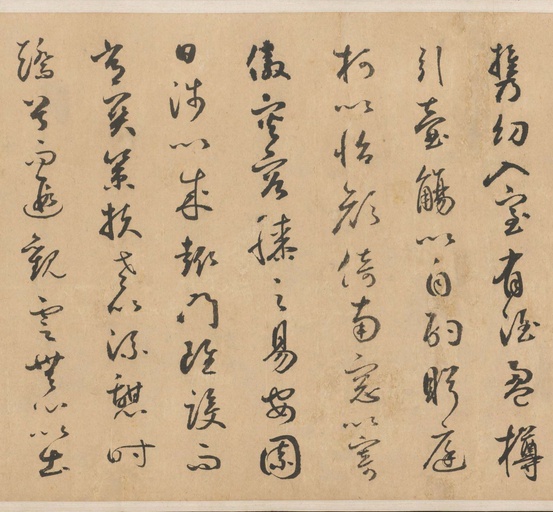 携幼入室有酒盈樽
引壺觴以自酌眄庭
柯以怡顔倚南窓以寄
傲審容膝之易安園
日涉以成趣門雖設而
常關策扶老以流憩時
矯首而遐觀雲無心以出